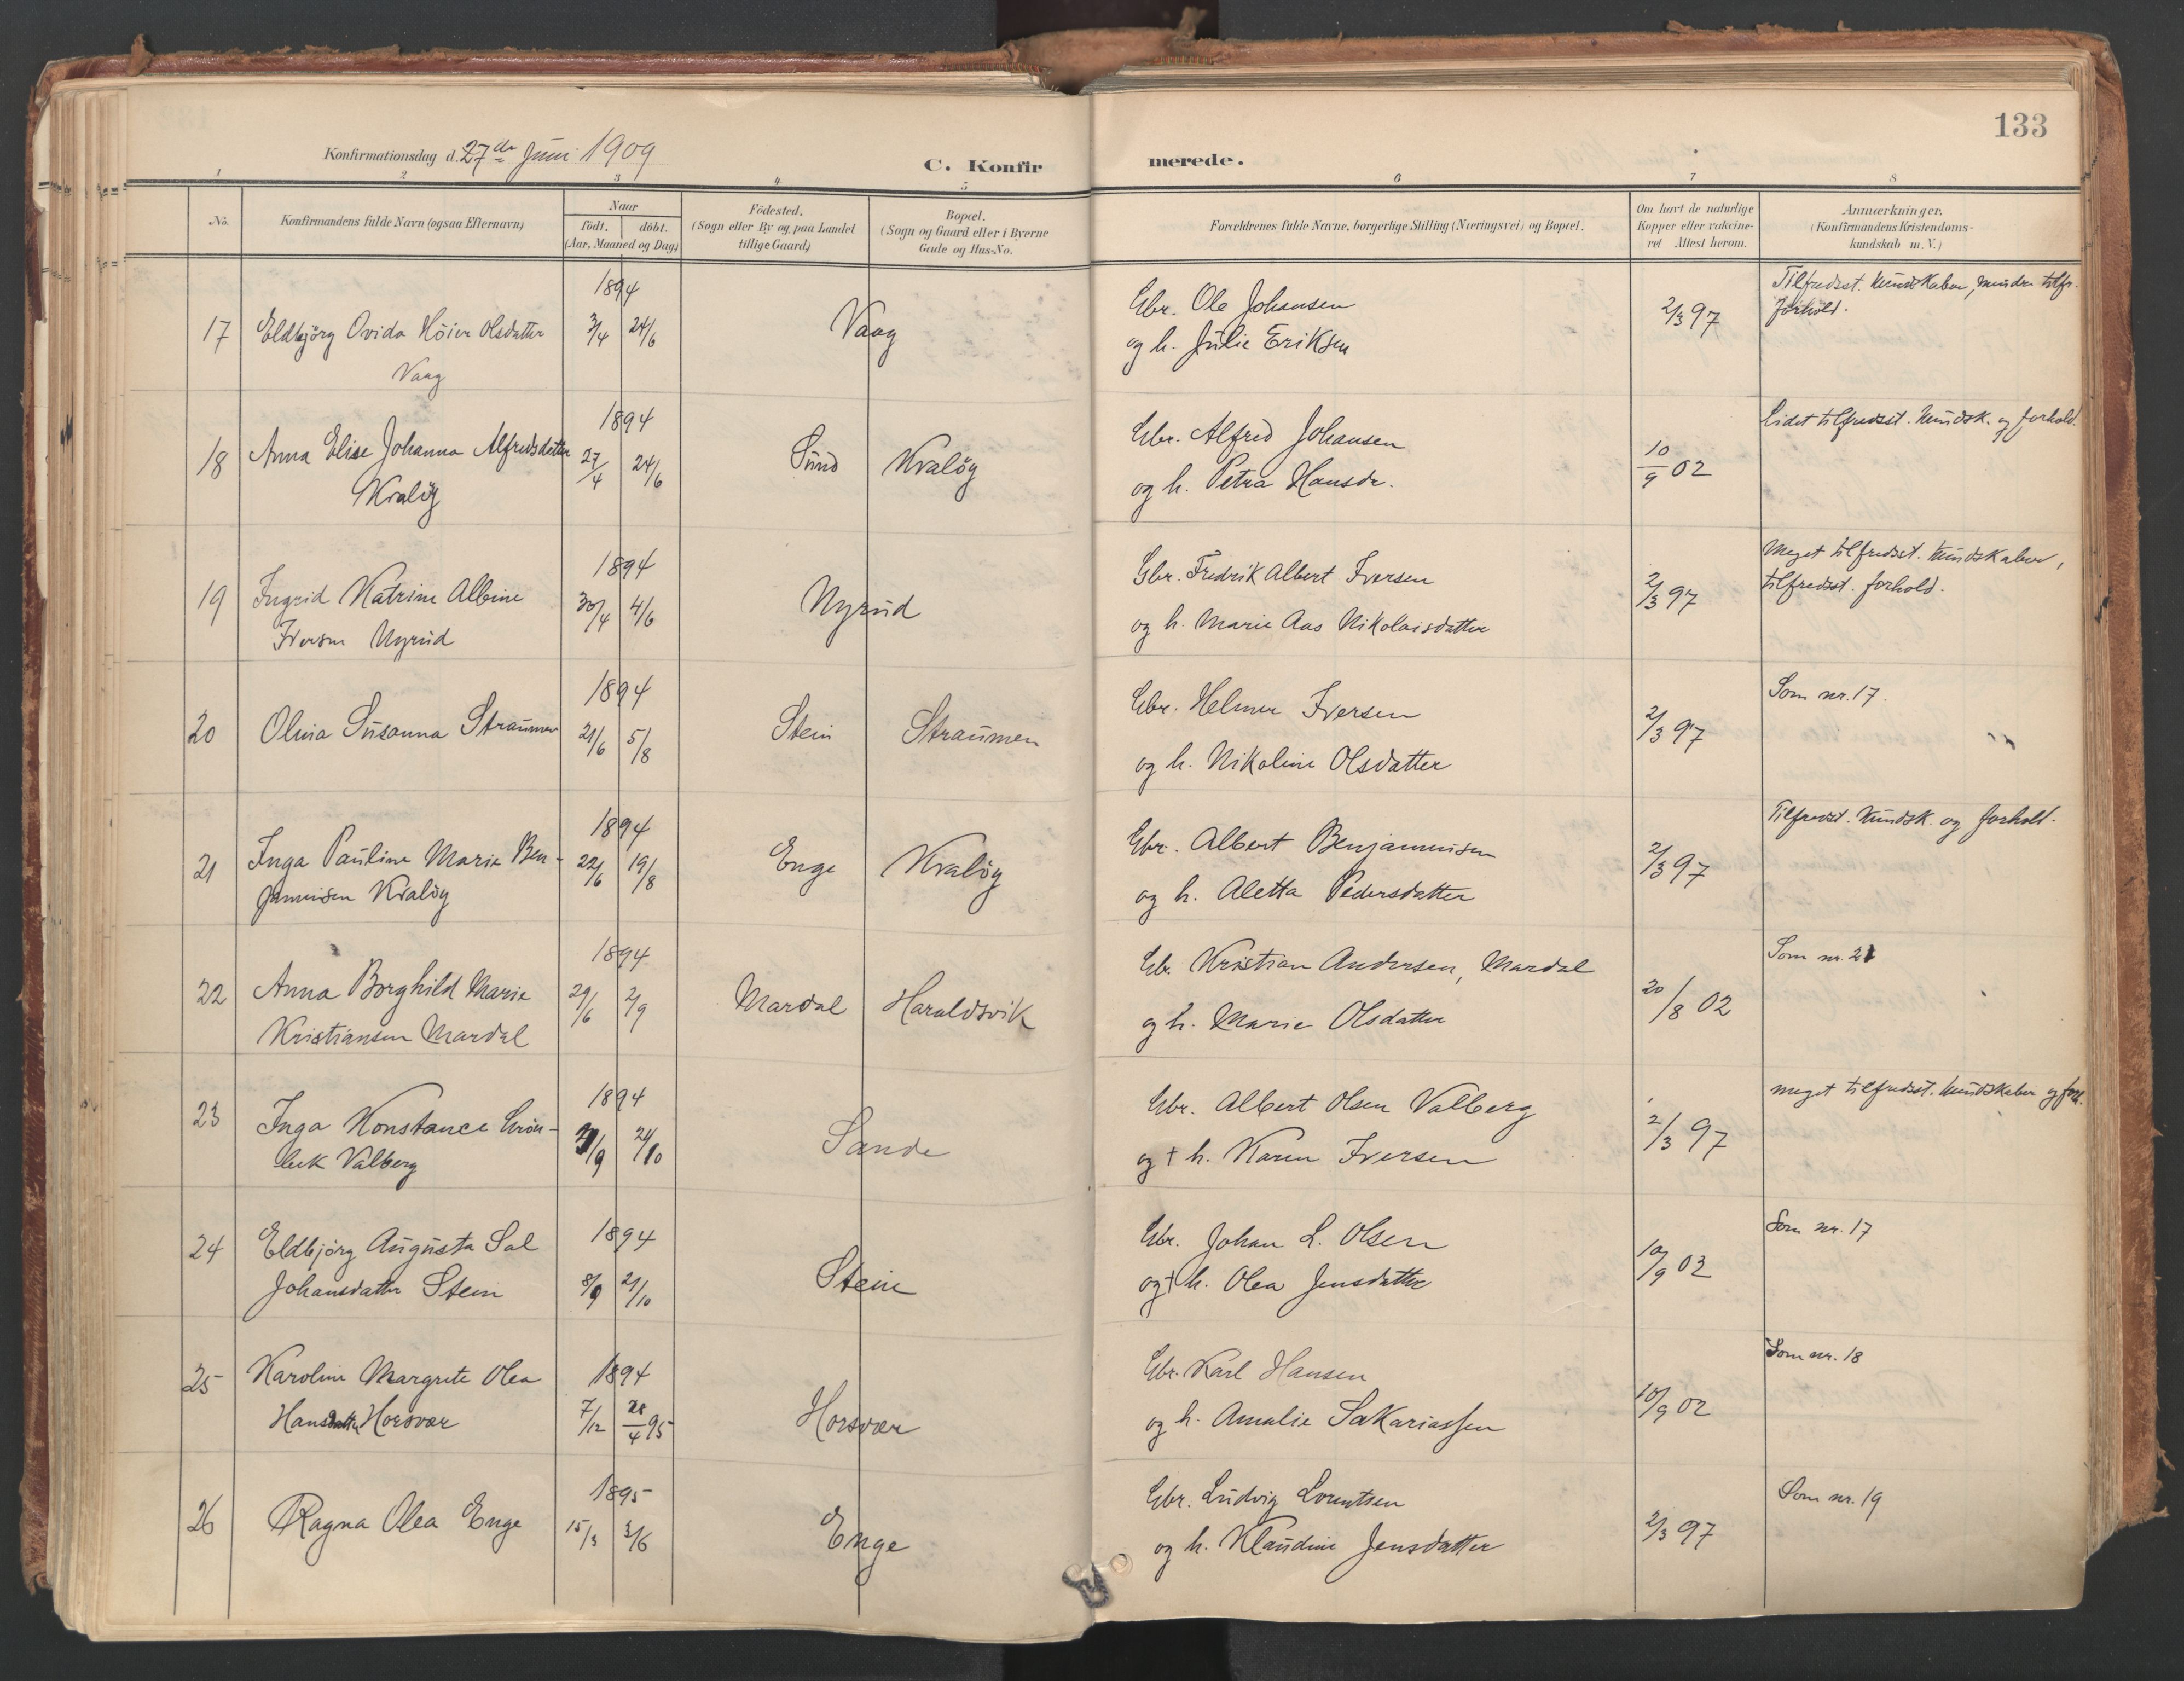 133
Konfirmationsdag d. 27de Juni 1909
C. Konfirmerede.
1 2 3 4 5 6 7 8
No.
Konfirmandens fulde Navn (ogsaa Efternavn)
Naar
födt. döbt.
(Aar, Maaned og Dag)
Födested.
(Sogn eller By og paa Landet
tillige Gaard)
Bopæl.
(Sogn og Gaard eller i Byerne
Gade og Hus-No.
Forældrenes fulde Navne, borgerlige Stilling (Næringsvei) og Bopæl.
Om havt de naturlige
Kopper eller vakcine-
ret Attest herom.
Anmærkninger.
(Konfirmandens Kristendoms-
kundskab m. V.)
17 Eldbjörg Ovida Höier Olsdatter
Vaag
1894
3/4 24/6
Vaag
Gbr. Ole Johansen
og h. Julie Eriksen
2/3 97
Tilfredsst. kundskaber, mindre tilfr.
forhold.
18 Anna Elise Johanna Alfredsdatter
Kvalög
1894
27/4 24/6
Sund Kvalög
Gbr. Alfred Johansen
og h. Petra Hansdr.
10/9 02
Lidet tilfredsst. kundsk. og forhold.
19 Ingrid Katrine Albine
Iversen Nyrud
1894
30/4 4/6
Nyrud
Gbr. Fredrik Albert Iversen
og h. Marie Aas Nikolaisdatter
2/3 97
Meget tilfredsst. kundskaber,
tilfredsst. forhold.
20 Olivia Susanna Straumen
1894
21/6 5/8
Stein Straumen
Gbr. Helmer Iversen
og h. Nikoline Olsdatter
2/3 97
Som nr. 17.
21 Inga Pauline Marie Ben-
jaminsen Kvalög
1894
22/6 19/8
Enge Kvalög
Gbr. Albert Benjaminsen
og h. Aletta Pedersdatter
2/3 97
Tilfredsst. kundsk. og forhold.
22 Anna Borghild Marie
Kristiansen Mardal
1894
29/6 2/9
Mardal Haraldsvik
Gbr. Kristian Andersen, Mardal
og h. Marie Olsdatter
20/8 02
Som nr. 21
23 Inga Konstance Grön-
bek Valberg
1894
/9 21/10
Sande
Gbr. Albert Olsen Valberg
og † h. Karen Iversen
2/3 97
meget tilfredsst. kundskaber og forh.
24 Eldbjörg Augusta Sal
Johansdatter Stein
1894
8/9 21/10
Stein
Gbr. Johan L. Olsen
og † h. Olea Jensdatter
10/9 03
Som nr. 17
25 Karoline Margrete Olea
Hansdatter Horsvær
1894
7/12 28/4 95
Horsvær
Gbr. Karl Hansen
og h. Amalie Sakariassen
10/9 02
Som nr. 18
26 Ragna Olea Enge
1895
15/3 3/6
Enge
Gbr. Ludvig Lorentsen
og h. Klaudine Jensdatter
2/3 97
Som nr. 19